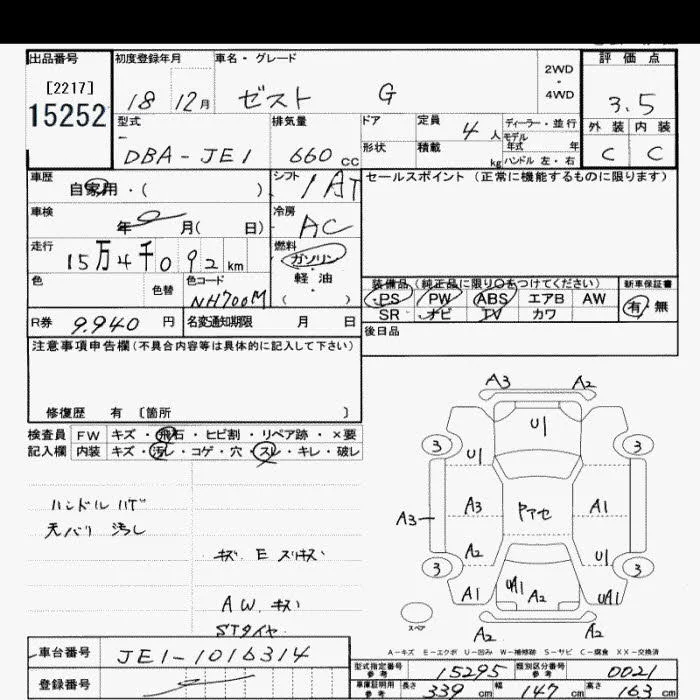 出品番号 初度登録年月 車名・グレード 2WD・4WD 評価点
[2217]
15252
18 12月 ゼスト G 3.5
型式 排気量 ドア 定員 4人 ディーラー・並行 外装 内装
モデル年式 年
DBA-JE1 660cc 形状 積載 kg ハンドル 左・右 C C
車歴 自家用・( ) シフト 1AT セールスポイント(正常に機能するものに限ります)
車検 年 月( 日) 冷房 AC
走行 15万4千092km 燃料 ガソリン・軽油 ( )
色 色替 色コード NH700M
装備品(純正品に限り○をつけてください) 新車保証書
PS PW ABS エアB AW 有 無
SR ナビ TV カワ
R券 9.940円 名変通知期限 月 日 後日品
注意事項申告欄(不具合内容等は具体的に記入して下さい)
修復歴 有〔箇所 〕
検査員 FW キズ・飛石・ヒビ割・リペア跡・×要
記入欄 内装 キズ・汚レ・コゲ・穴・スレ・キレ・破レ
ハンドル ハゲ
天バリ 汚し
キズ E スリキズ
A W. キズ
STタイヤ
A3 A2
U1
3 3
U1
A3 A3 Pアセ A1
A2 U1
3 3
A1 UA1 A2 UA1
スペア A2 A2
A-キズ E-エクボ U-凹み W-補修跡 S-サビ C-腐食 XX-交換済
車台番号 JE1-1016314
型式指定番号 参考 15295 類別区分番号 参考 0021
登録番号
車庫証明用 参考 長さ 339cm 幅 147cm 高さ 163cm